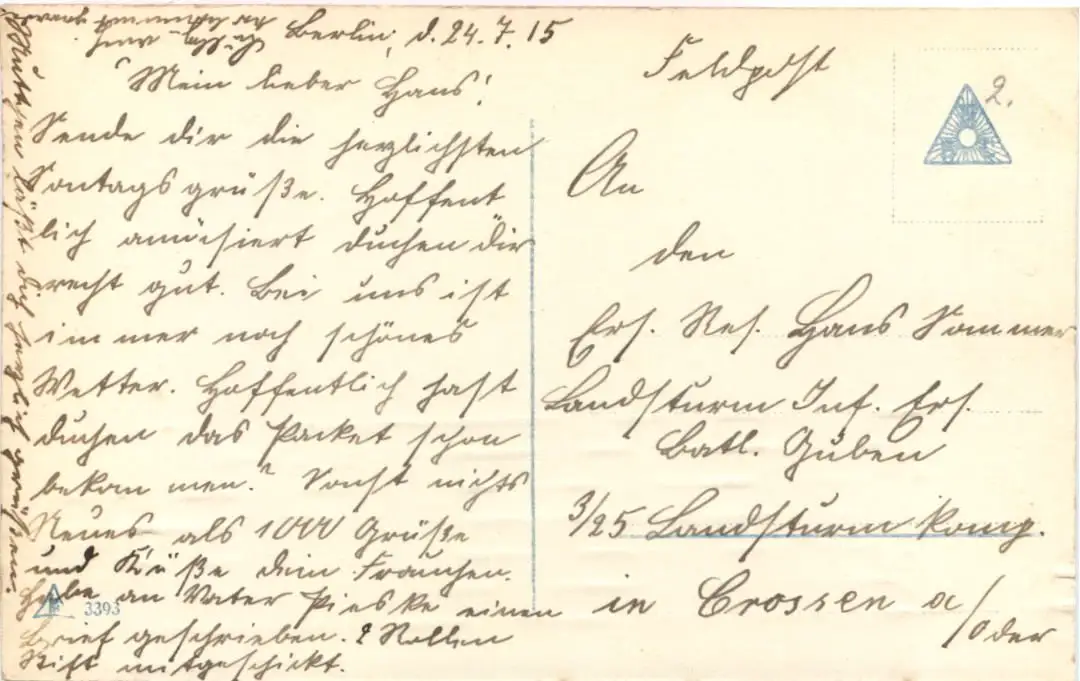 Berlin, d. 24.7.15
Mein lieber Hans!
Sende dir die herzlichsten
Sontagsgrüße. Hoffent
lich amüsiert duchen dir
recht gut. Bei uns ist
immer noch schönes
Wetter. Hoffentlich hast
duchen das Packet schon
bekommen? Sonst nichts
Neues als 1000 Grüße
und Küße dein Frauchen.
Habe an Vater Pieske einen
Brief geschrieben. 2 Rollen
mitgeschickt.
läßt dich herzlich grüßen.
Feldpost
2.
An
den
Ers. Res. Hans Sommer
Landsturm Inf. Ers.
Batl. Guben
3/25 Landsturm Komp.
in Crossen a/
Oder
3393